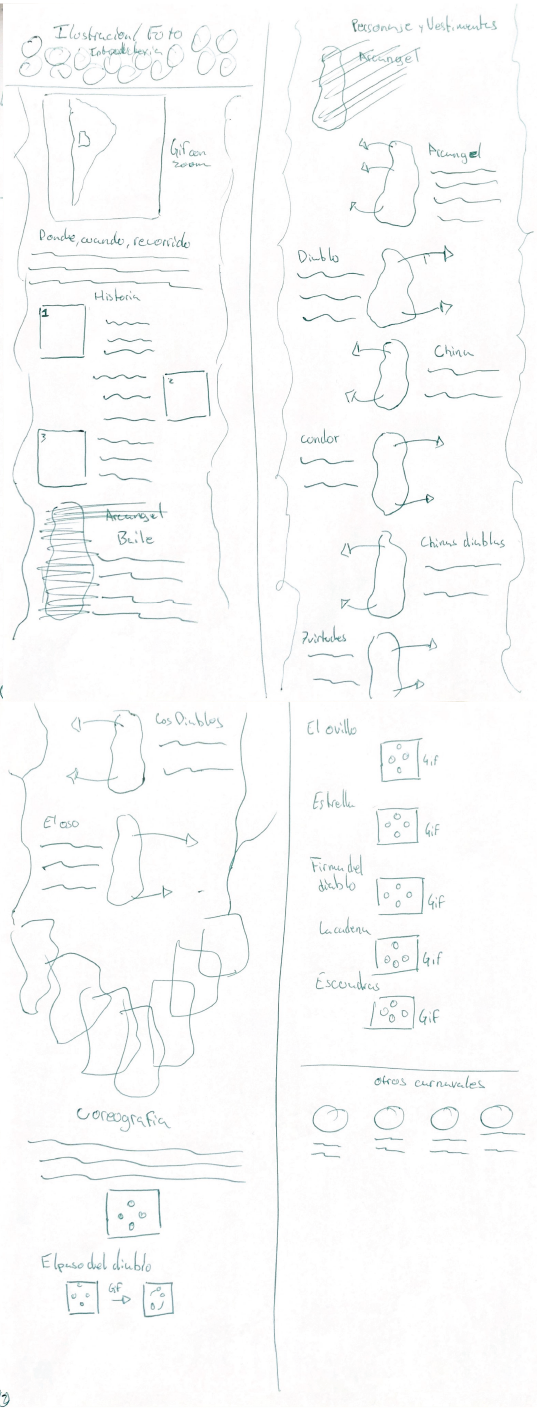 Ilustracion/Foto
Introductoria
Gif con
zoom
Donde, cuando, recorrido
Historia
1
2
3
Arcangel
Baile
Personaje y Vestimentas
Arcangel
Arcangel
Diablo
China
condor
Chinas diablas
7 virtudes
Los Diablos
El oso
coreografia
El paso del diablo
Gif
El ovillo
Gif
Estrella
Gif
Firma del
diablo
Gif
La cadena
Gif
Escuadras
Gif
otros carnavales